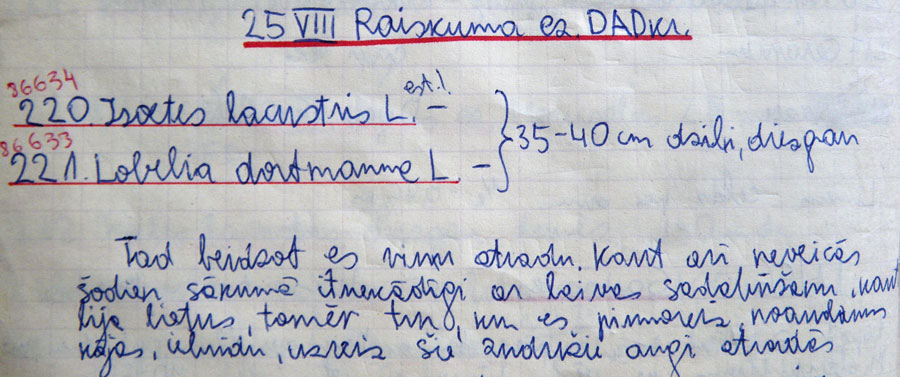 25 VIII Raiskuma ez. DADkr.
86634
220. Isoetes lacustris L. est.! –
86633
221. Lobelia dortmanna L. –
35–40 cm dziļi, diezgan
Tad beidzot es viņu atradu. Kaut arī neveicās
šodien sākumā itnekādīgi ar laivas sadabūšanu, kaut
lija lietus, tomēr tur, kur es pirmoreiz, noaudams
kājas, iebridu, uzreiz šie augi atradās